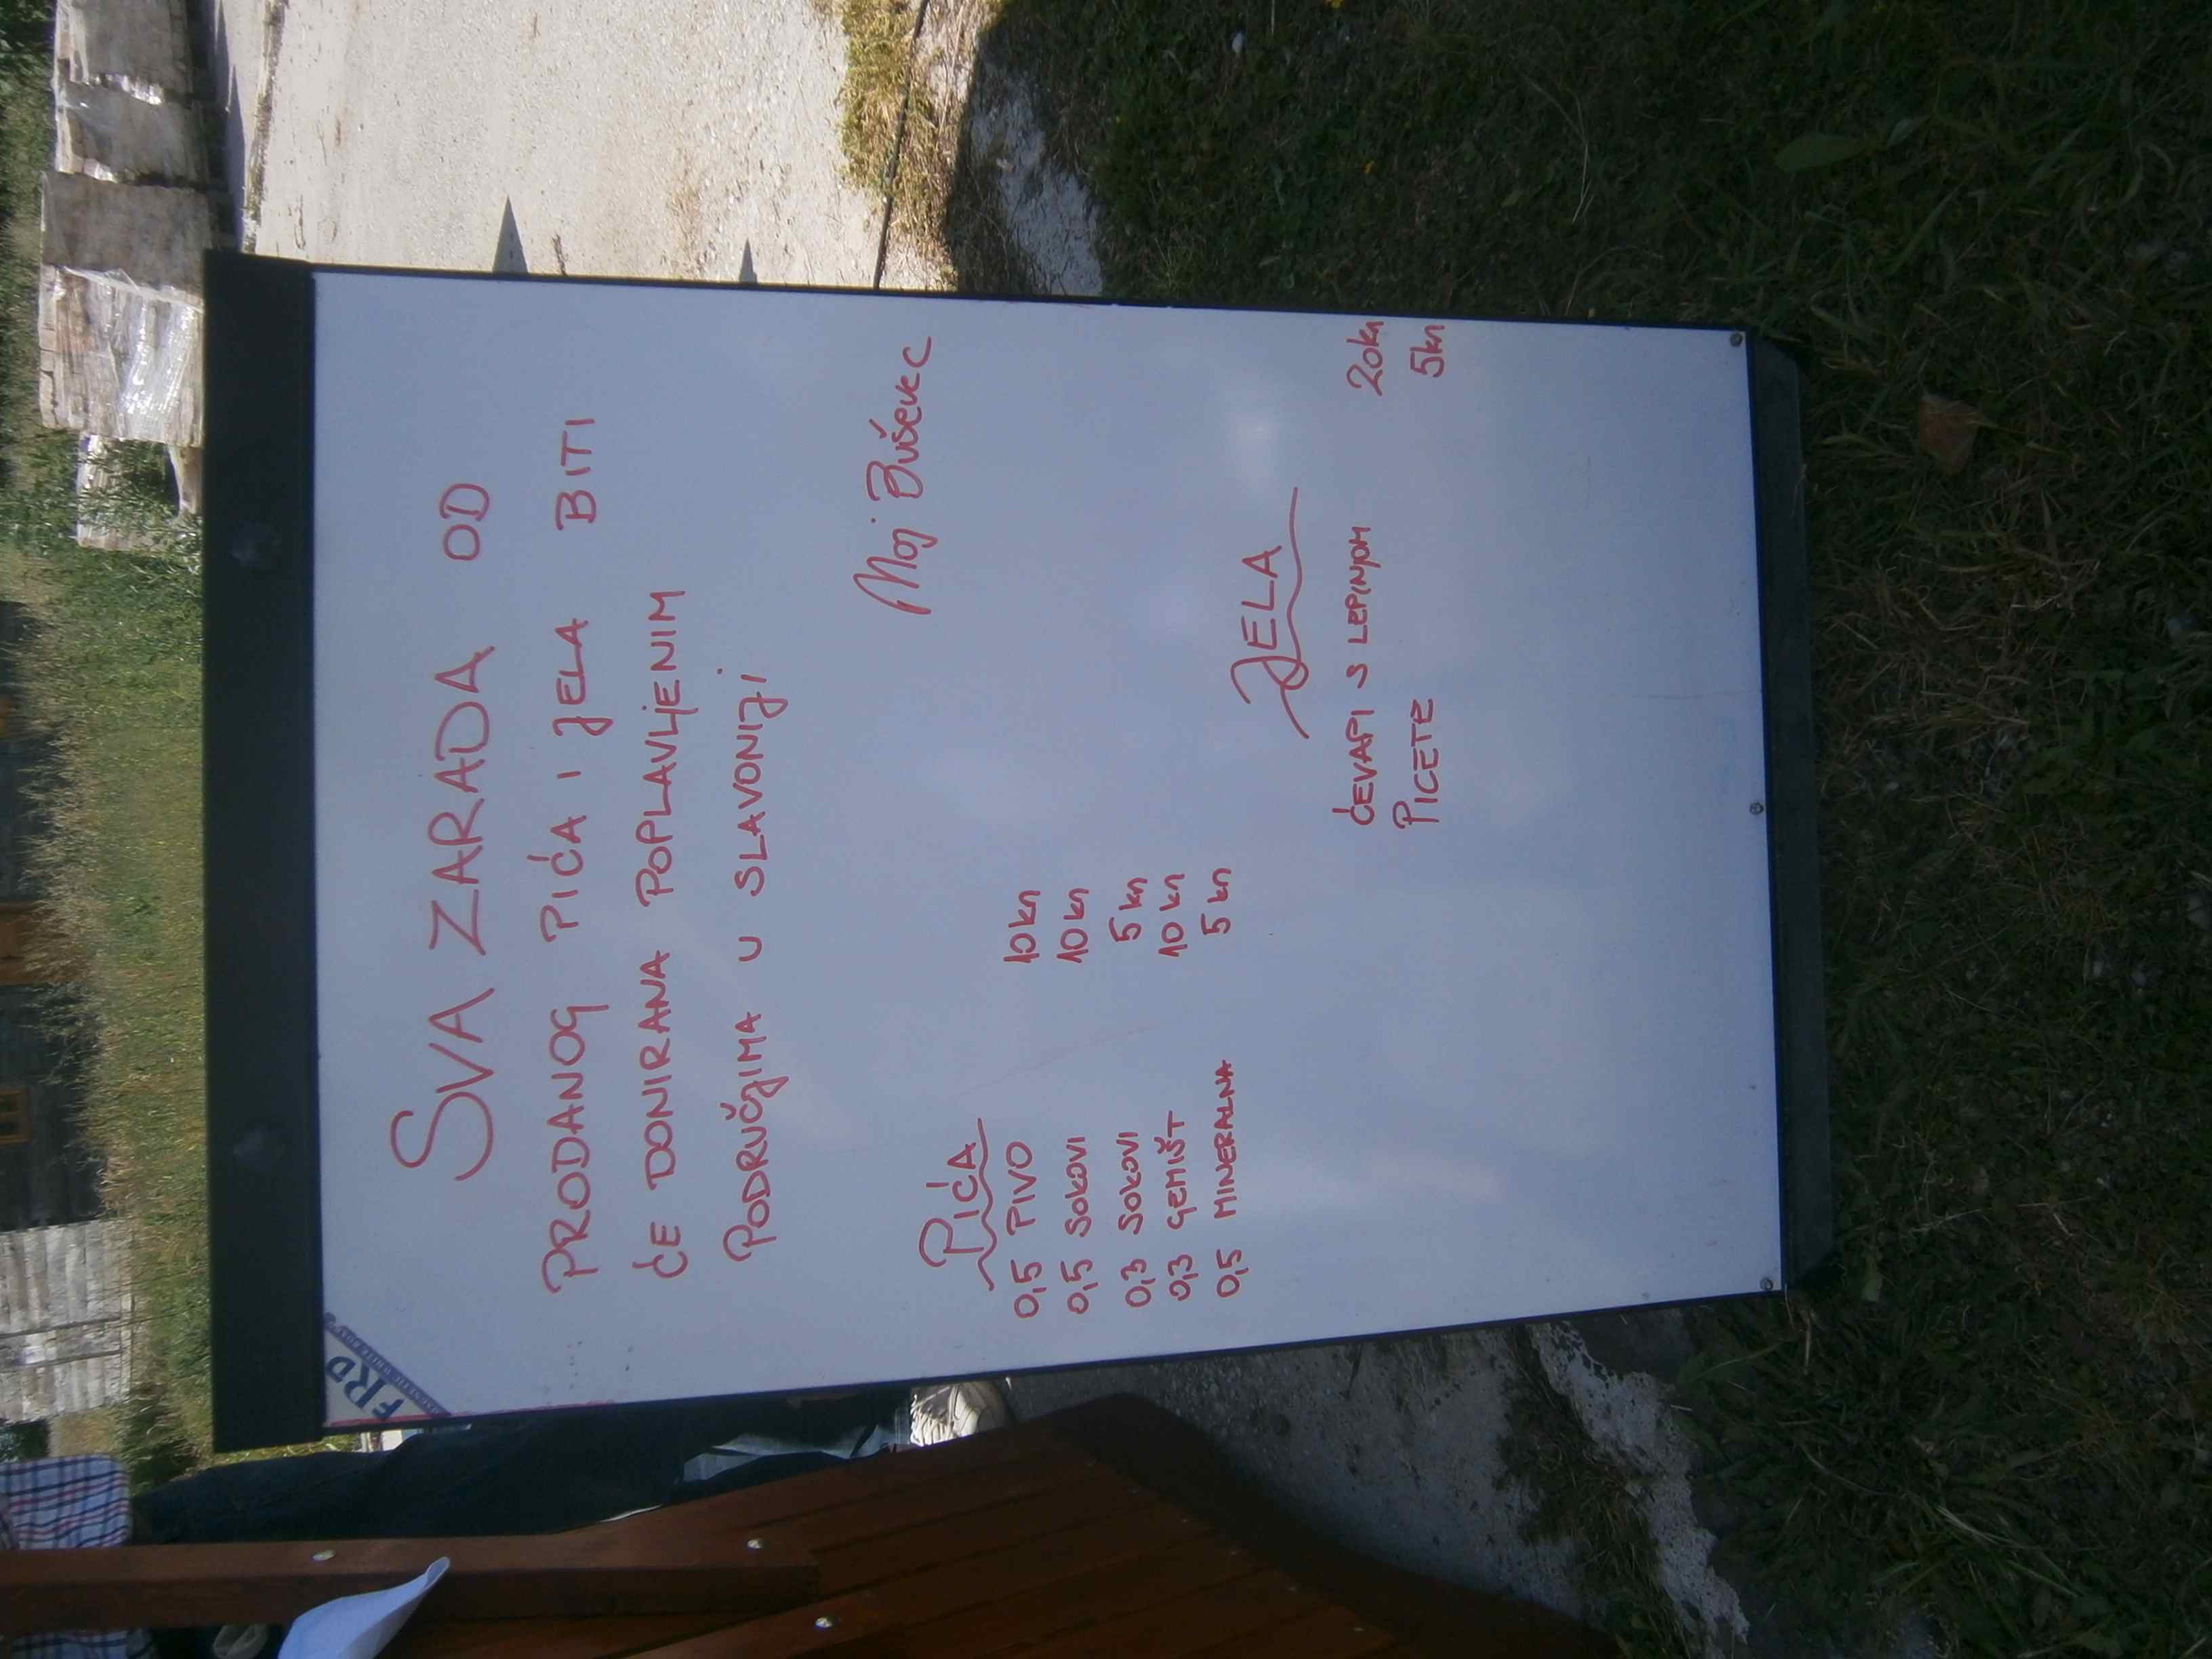 SVA ZARADA OD
PRODANOG PIĆA I JELA BITI
ĆE DONIRANA POPLAVLJENIM
PODRUČJIMA U SLAVONIJI
Moj Buševec
PIĆA
0,5 PIVO 10 kn
0,5 SOKOVI 10 kn
0,3 SOKOVI 5 kn
0,3 GEMIŠT 10 kn
0,5 MINERALNA 5 kn
JELA
ĆEVAPI S LEPINJOM 20kn
PICETE 5kn
FRD